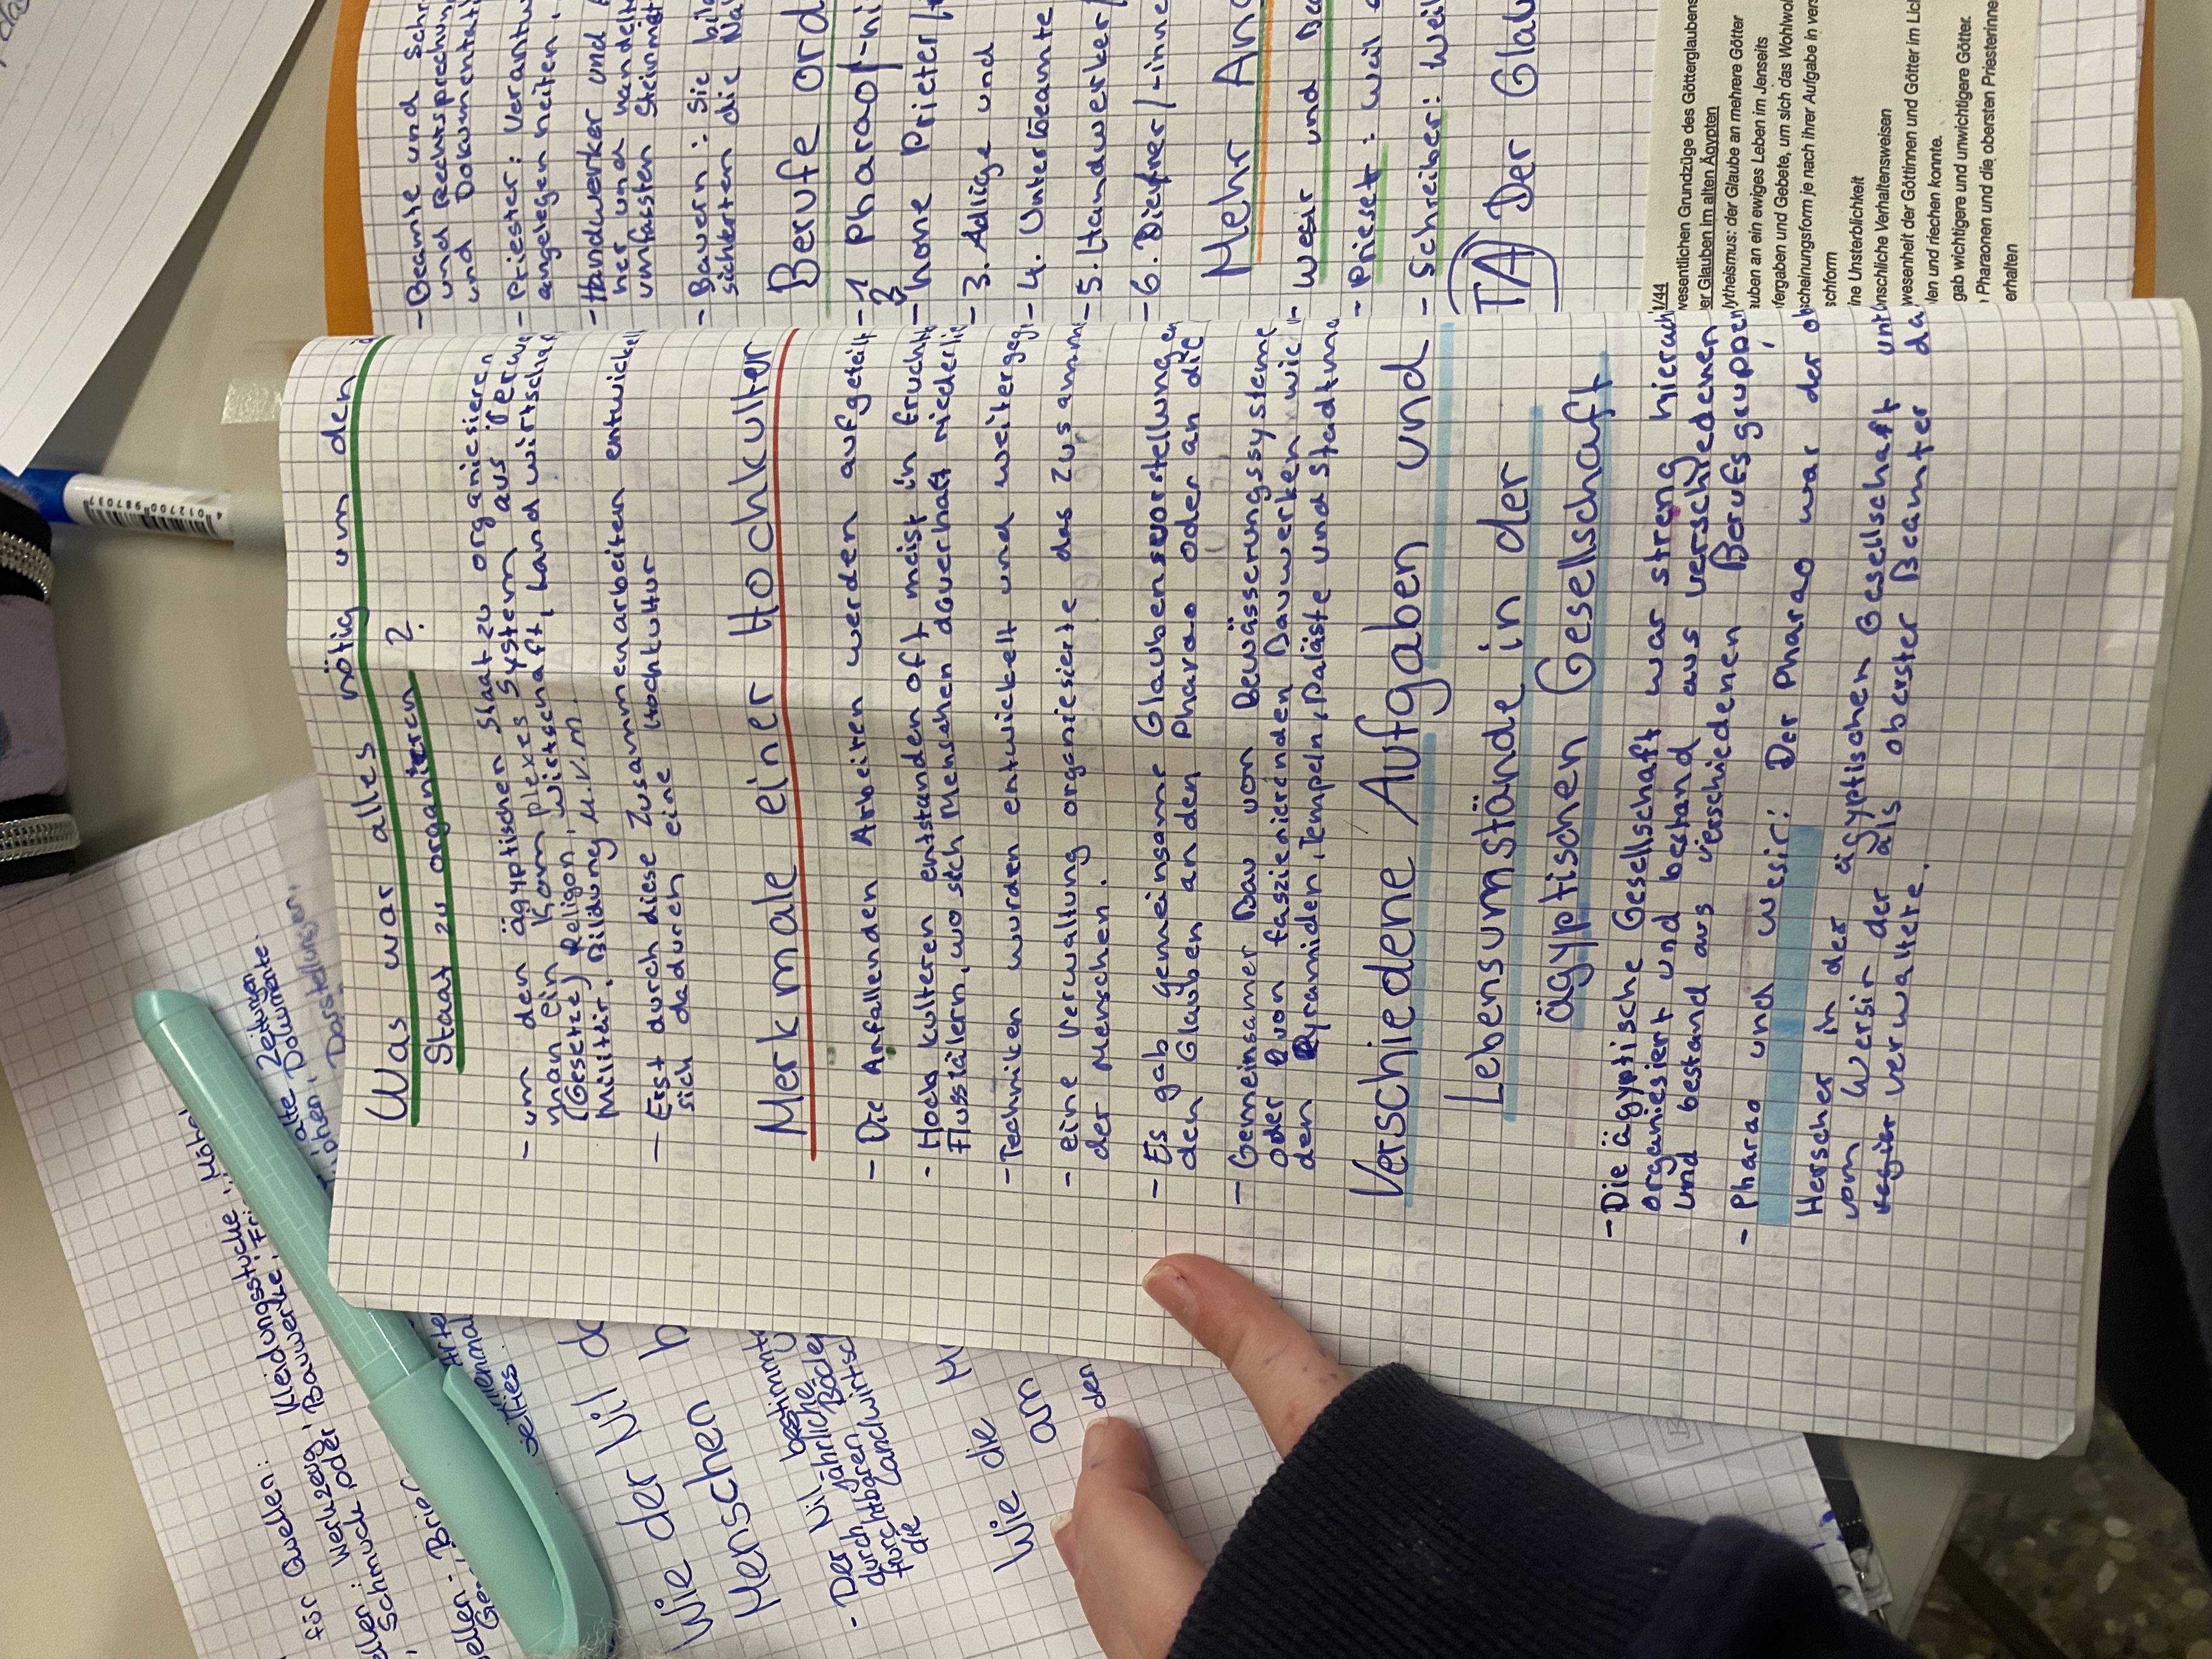 für Quellen:
Werkzeug, Kleidungsstücke, Möbel
Schmuck oder Bauwerke,
alte Zeitungen
Dokumente.
Darstellungen,
Wie der Nil
Menschen b
- Der Nil bestimmte
durch jährliche
furchtbaren Böde
die Landwirtsc
Wie die M
am
den
Was war alles nötig um den
Staat zu organisieren ?
- um den ägyptischen Staat zu organiesieren
man ein komplexes System aus Verwa
(Gesetze) Religon, Wirtschaft, Landwirtschaf
Militär, Bildung u.v.m.
- Erst durch diese Zusammenarbeiten entwickel
sich dadurch eine Hochkultur
Merkmale einer Hochkulter
- Die Anfallenden Arbeiten werden aufgeteilt
- Hochkulteren entstanden oft meist in frucht
Flusstälern, wo sich Menschen dauerhaft niederlie
- Techniken wurden entwickelt und weitergeg
- eine Verwaltung organiesierte das Zusamm
der Menschen.
- Es gab gemeinsame Glaubensvorstellungen
den Glauben an den Pharao oder an die
- Gemeinsamer Bau von Bewässerungssysteme
oder von faszienierenden Bauwerken wie
den Pyramiden, Tempeln, Paläste und Stadtma
Verschiedene Aufgaben und
Lebensumstände in der
ägyptischen Gesellschaft
- Die ägyptische Gesellschaft war streng hierach
organiesiert und bestand aus verschiedenen
und bestand aus verschiedenen Berufsgruppen
- Pharao und Wesir: Der Pharao war der ob
Herscher in der ägyptischen Gesellschaft unt
vom Wersir der als oberster Beamter da
regier verwaltete.
- Beamte und Schr
und Rechtsprechun
und Dokumentati
- Priester: Verantw
angelegenheiten.
- Handwerker und
ner und handelt
umfassten Steinmet
- Bauern: Sie bil
sicherten die Na
Berufe ord
- 1 Pharao/-ni
2
- hohe Prieter/
- 3. Adlige und
- 4. Unterbeamte
- 5. Handwerker/
- 6. Diener/-inne
Mehr An
- Wesir und Be
- Priester: weil
- Schreiber: Weil
TA Der Glau
1/44
wesentlichen Grundzüge des Götterglaubens
er Glauben im alten Ägypten
lytheismus: der Glaube an mehrere Götter
auben an ein ewiges Leben im Jenseits
fergaben und Gebete, um sich das Wohlwol
scheinungsform je nach ihrer Aufgabe in vers
schform
ine Unsterblichkeit
nschliche Verhaltensweisen
wesenheit der Göttinnen und Götter im Lich
len und riechen konnte.
gab wichtigere und unwichtigere Götter.
Pharaonen und die obersten Priesterinne
erhalten
4 012700 987037